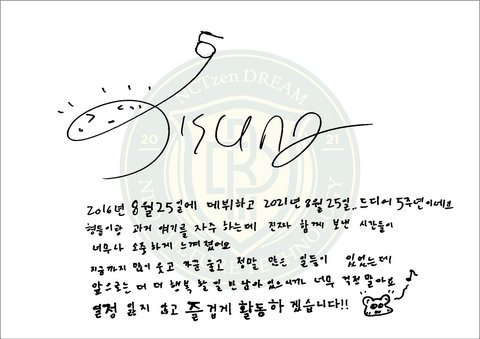 5
Jisung
NCTzen DREAM
20
21
2016년 8월25일에 데뷔하고 2021년 8월 25일.. 드디어 5주년이네요
형들이랑 과거 얘기를 자주 하는데 진짜 함께 보낸 시간들이
너무나 소중하게 느껴졌어요
지금까지 많이 웃고 가끔 울고 정말 많은 일들이 있었는데
앞으로는 더 더 행복 할 일만 남아 있으니까 너무 걱정 말아요
열정 잃지 않고 즐겁게 활동하겠습니다!!